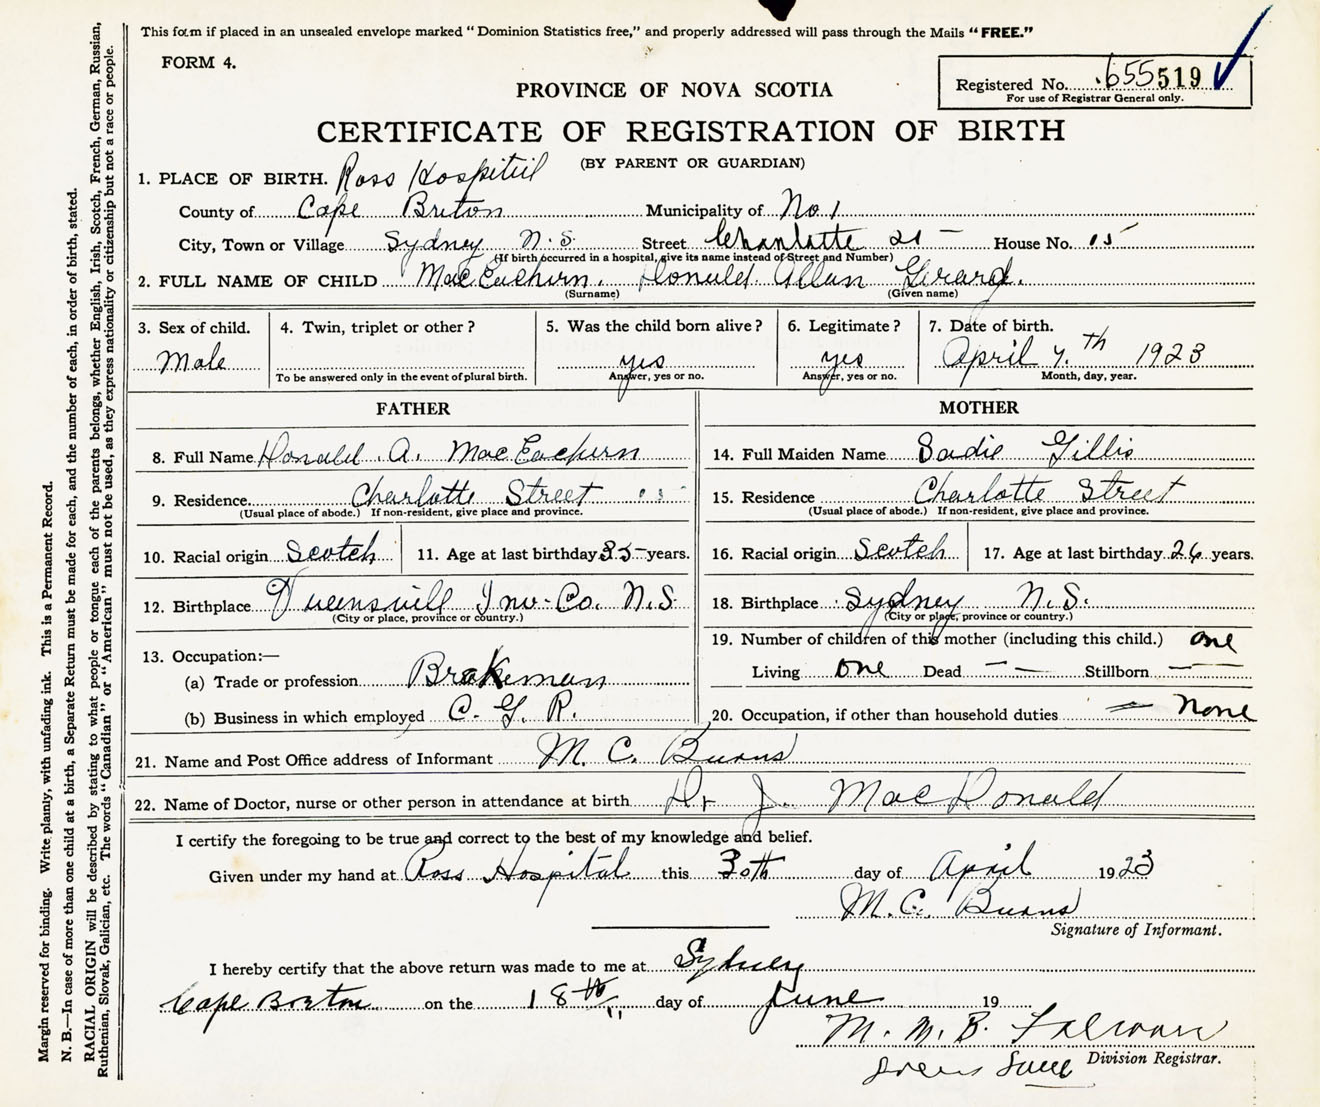 This form if placed in an unsealed envelope marked "Dominion Statistics free," and properly addressed will pass through the Mails "FREE."
FORM 4.
Registered No. 655519
For use of Registrar General only.
PROVINCE OF NOVA SCOTIA
CERTIFICATE OF REGISTRATION OF BIRTH
(BY PARENT OR GUARDIAN)
1. PLACE OF BIRTH. Ross Hospital
County of Cape Breton Municipality of No 1
City, Town or Village Sydney N.S. Street Charlotte House No.
(If birth occurred in a hospital, give its name instead of Street and Number)
2. FULL NAME OF CHILD MacEachern. Donald Allan Gerard.
(Surname) (Given name)
3. Sex of child. 4. Twin, triplet or other? 5. Was the child born alive? 6. Legitimate? 7. Date of birth.
Male yes yes April 7.th 1923
To be answered only in the event of plural birth. Answer, yes or no. Answer, yes or no. Month, day, year.
FATHER MOTHER
8. Full Name Donald. A. MacEachern 14. Full Maiden Name Sadie Gillis
9. Residence Charlotte Street 15. Residence Charlotte Street
(Usual place of abode.) If non-resident, give place and province. (Usual place of abode.) If non-resident, give place and province.
10. Racial origin Scotch 11. Age at last birthday 35 years. 16. Racial origin Scotch 17. Age at last birthday 26 years.
12. Birthplace Queensvill Inv. Co. N.S. 18. Birthplace Sydney N.S.
(City or place, province or country.) (City or place, province or country.)
19. Number of children of this mother (including this child.) one
13. Occupation:—
Living one Dead — — Stillborn — —
(a) Trade or profession Brakeman
(b) Business in which employed C. G. R. 20. Occupation, if other than household duties none
21. Name and Post Office address of Informant M. C. Burns
22. Name of Doctor, nurse or other person in attendance at birth Dr J. MacDonald
I certify the foregoing to be true and correct to the best of my knowledge and belief.
Given under my hand at Ross Hospital this 30th day of April 1923
M. C. Burns
Signature of Informant.
I hereby certify that the above return was made to me at Sydney
Cape Breton on the 18th day of June 19
M. M. B.
Division Registrar.
Margin reserved for binding. Write plainly, with unfading ink. This is a Permanent Record.
N. B.—In case of more than one child at a birth, a Separate Return must be made for each, and the number of each, in order of birth, stated.
RACIAL ORIGIN will be described by stating to what people or tongue each of the parents belongs, whether English, Irish, Scotch, French, German, Russian,
Ruthenian, Slovak, Galician, etc. The words "Canadian" or "American" must not be used, as they express nationality or citizenship but not a race or people.